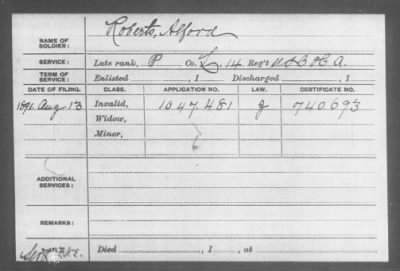 NAME OF SOLDIER: Roberts, Alford
SERVICE: Late rank, P Co. L, 14 Reg't U S C H A.
TERM OF SERVICE: Enlisted , 1 Discharged , 1
DATE OF FILING. CLASS. APPLICATION NO. LAW. CERTIFICATE NO.
1891 Aug 13 Invalid, 1047.481 740.693
Widow,
Minor,
ADDITIONAL SERVICES:
REMARKS:
Died , 1 , at